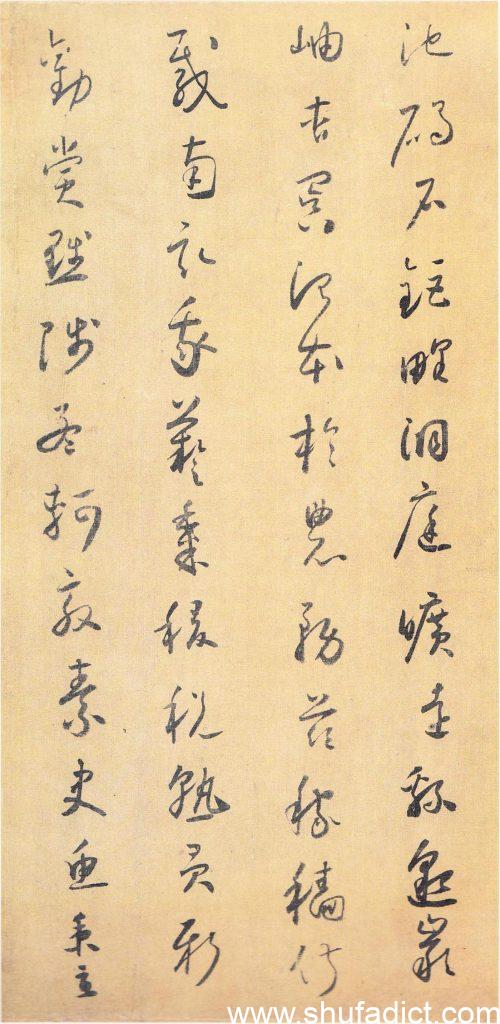 池碣石鉅野洞庭曠遠緜邈巖
岫杳冥治本於農務茲稼穡俶
載南畝我藝黍稷稅熟貢新
勸賞黜陟孟軻敦素史魚秉直
www.shufadict.com